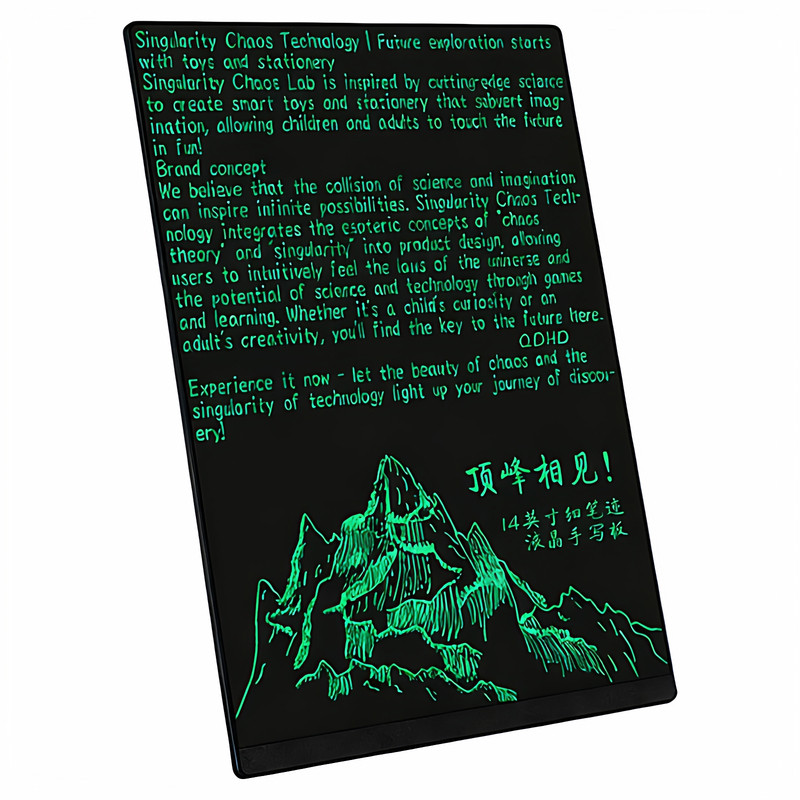 Singularity Chaos Technology | Future exploration starts
with toys and stationery
Singularity Chaos Lab is inspired by cutting-edge science
to create smart toys and stationery that subvert imag-
ination, allowing children and adults to touch the future
in fun!
Brand concept
We believe that the collision of science and imagination
can inspire infinite possibilities. Singularity Chaos Tech-
nology integrates the esoteric concepts of "chaos
theory" and "singularity" into product design, allowing
users to intuitively feel the laws of the universe and
the potential of science and technology through games
and learning. Whether it's a child's curiosity or an
adult's creativity, you'll find the key to the future here.
QDHD
Experience it now - let the beauty of chaos and the
singularity of technology light up your journey of discov-
ery!
顶峰相见!
14英寸细笔迹
液晶手写板